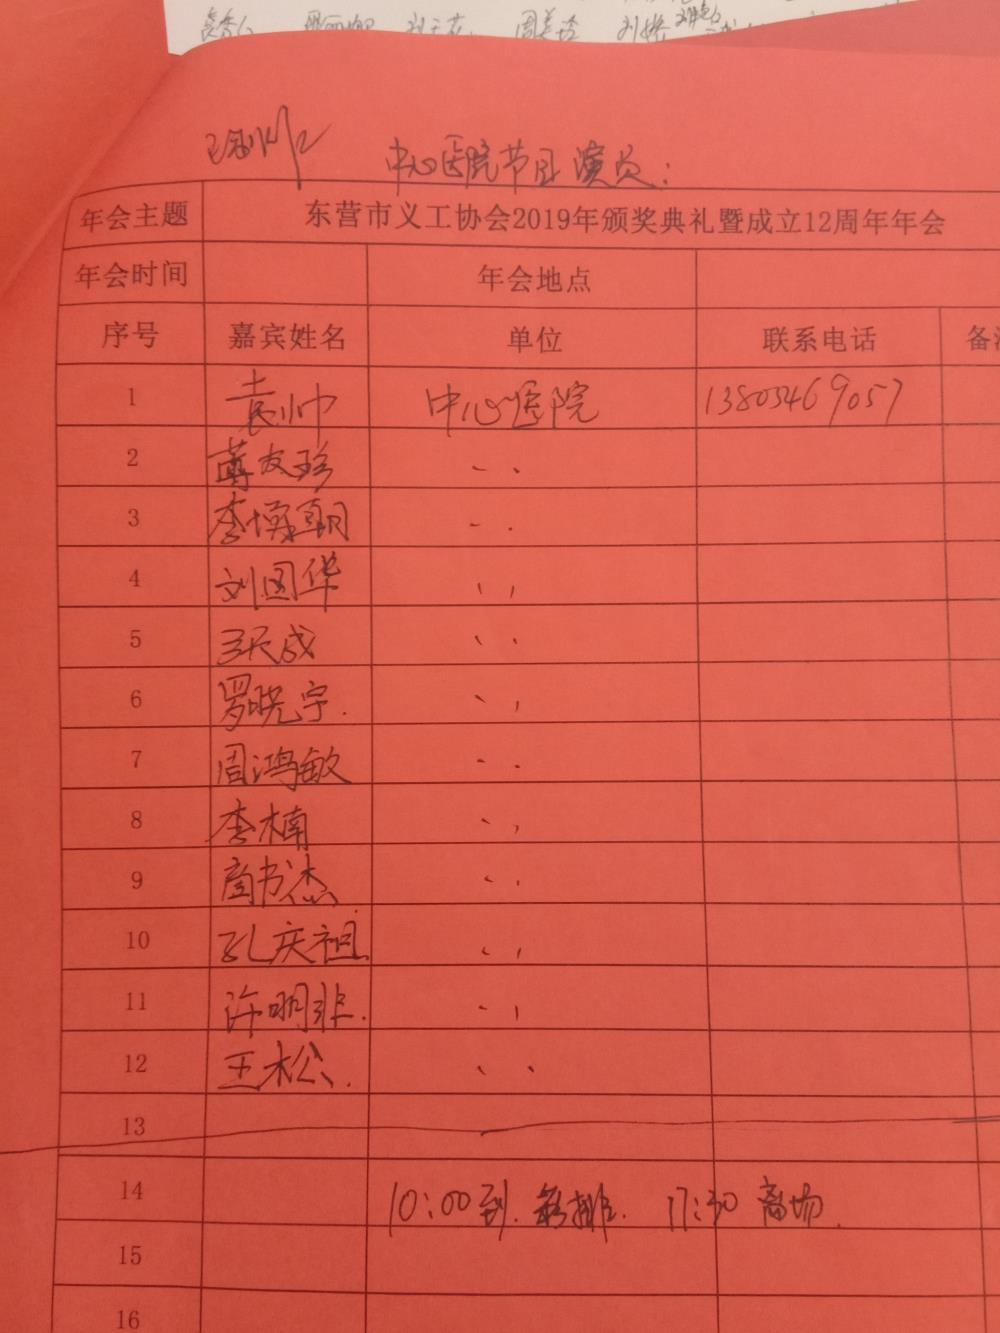 中心医院节目演员：
年会主题 东营市义工协会2019年颁奖典礼暨成立12周年年会
年会时间 年会地点
序号 嘉宾姓名 单位 联系电话 备
1 袁帅 中心医院 13805469057
2 蒋友珍 、、
3 李博朝 、、
4 刘国华 、、
5 王天成 、、
6 罗晓宇. 、、
7 周鸿敏 、、
8 李楠 、、
9 商书杰 、、
10 孔庆祖 、、
11 许明非. 、、
12 王松. 、、
13
14 10:00到.彩排. 17:30离场.
15
16